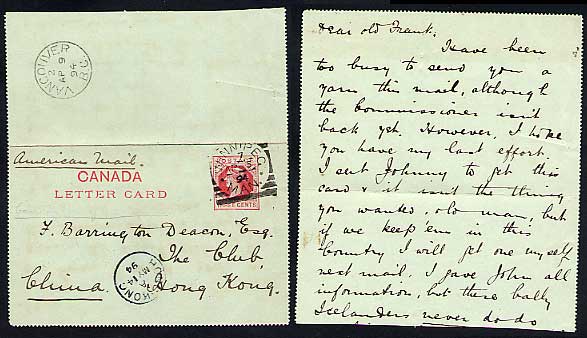 VANCOUVER
2
AP 9
94
B.C.
American Mail.
CANADA
LETTER CARD
WINNIPEG
THREE CENTS
F. Barrington Deacon, Esq.
The Club,
China. Hong Kong.
HONG KONG
MY 14
94
Dear old Frank,
Have been
too busy to send you a
yarn this mail, although
the Commissioner isn't
back yet. However, I hope
you have my last effort.
I sent Johnny to get this
card & it isnt the thing
you wanted, old man, but
if we keep 'em in this
Country I will get one myself
next mail. I gave John all
information, but these bally
Icelanders never do do